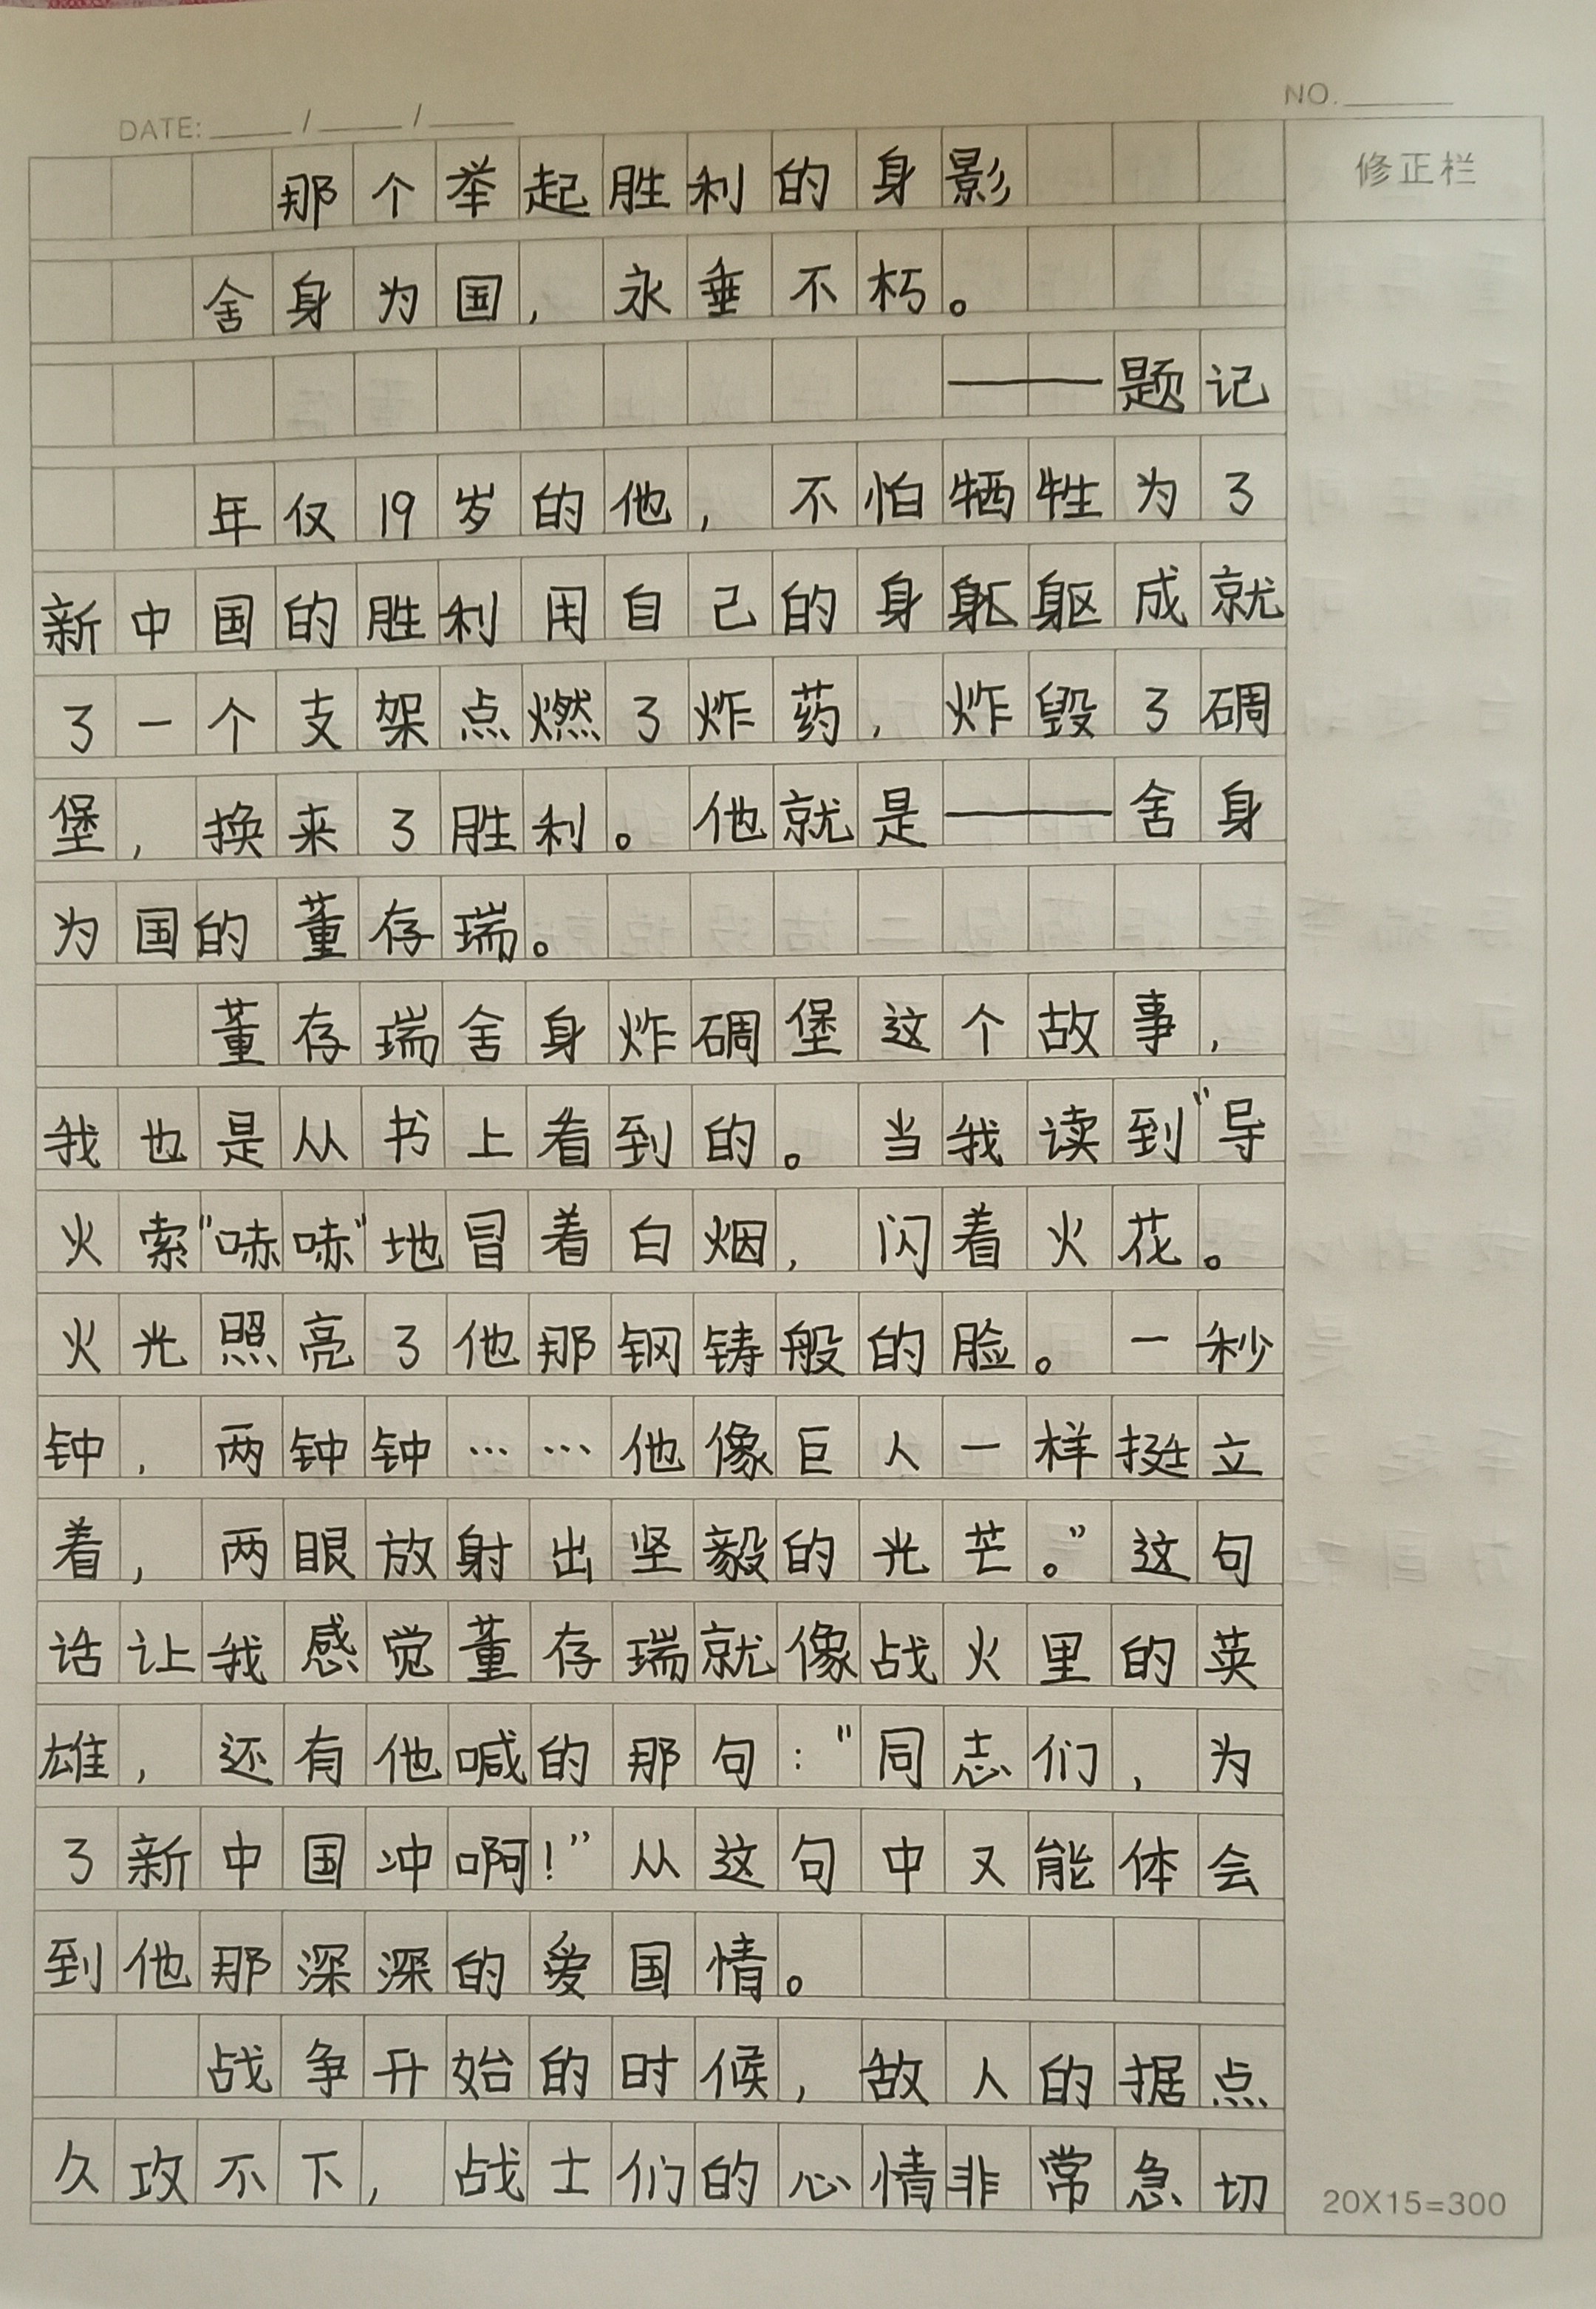 DATE: ____ / ____ / ____
NO. ____
那个举起胜利的身影
修正栏
舍身为国，永垂不朽。
——题记
年仅19岁的他，不怕牺牲为了
新中国的胜利用自己的身躯躯成就
了一个支架点燃了炸药，炸毁了碉
堡，换来了胜利。他就是——舍身
为国的董存瑞。
董存瑞舍身炸碉堡这个故事，
我也是从书上看到的。当我读到“导
火索“哧哧”地冒着白烟，闪着火花。
火光照亮了他那钢铸般的脸。一秒
钟，两钟钟……他像巨人一样挺立
着，两眼放射出坚毅的光芒。”这句
话让我感觉董存瑞就像战火里的英
雄，还有他喊的那句：“同志们，为
了新中国冲啊！”从这句中又能体会
到他那深深的爱国情。
战争开始的时候，敌人的据点
久攻不下，战士们的心情非常急切
20X15=300